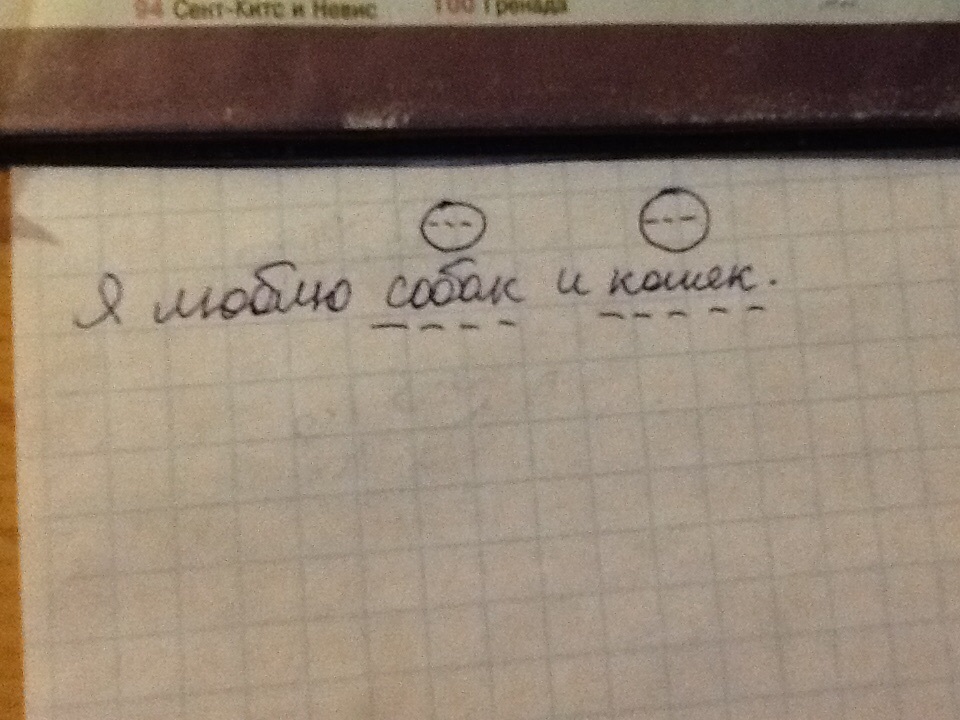 94 Сент-Китс и Невис 100 Гренада
Я люблю собак и кошек.